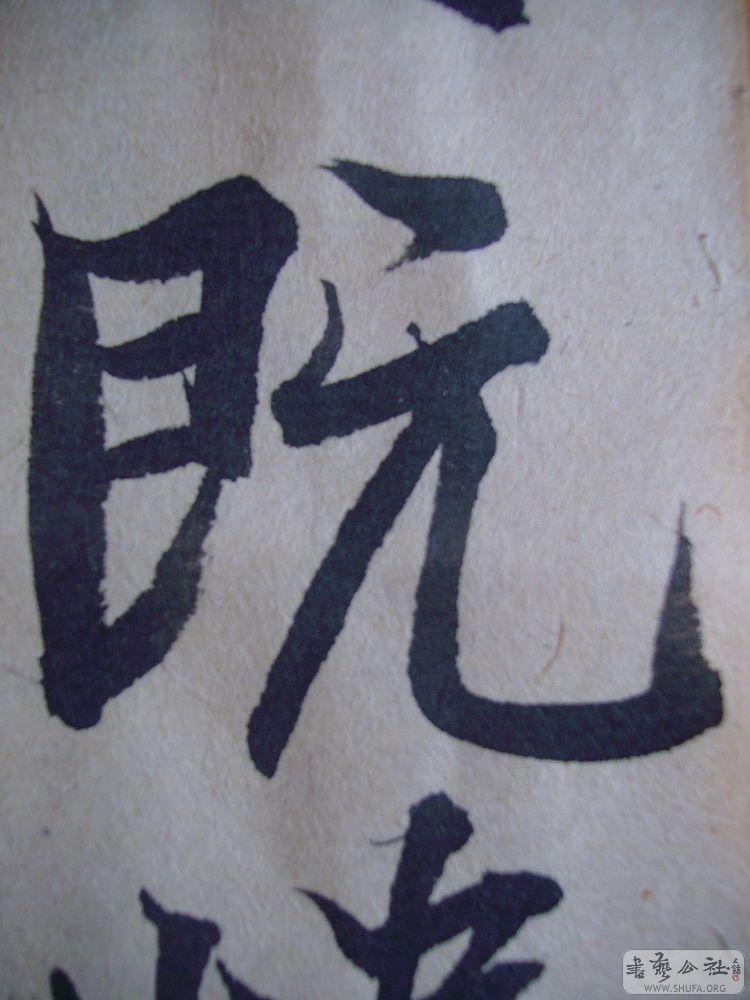 既
書藝公社
WWW.SHUFA.ORG